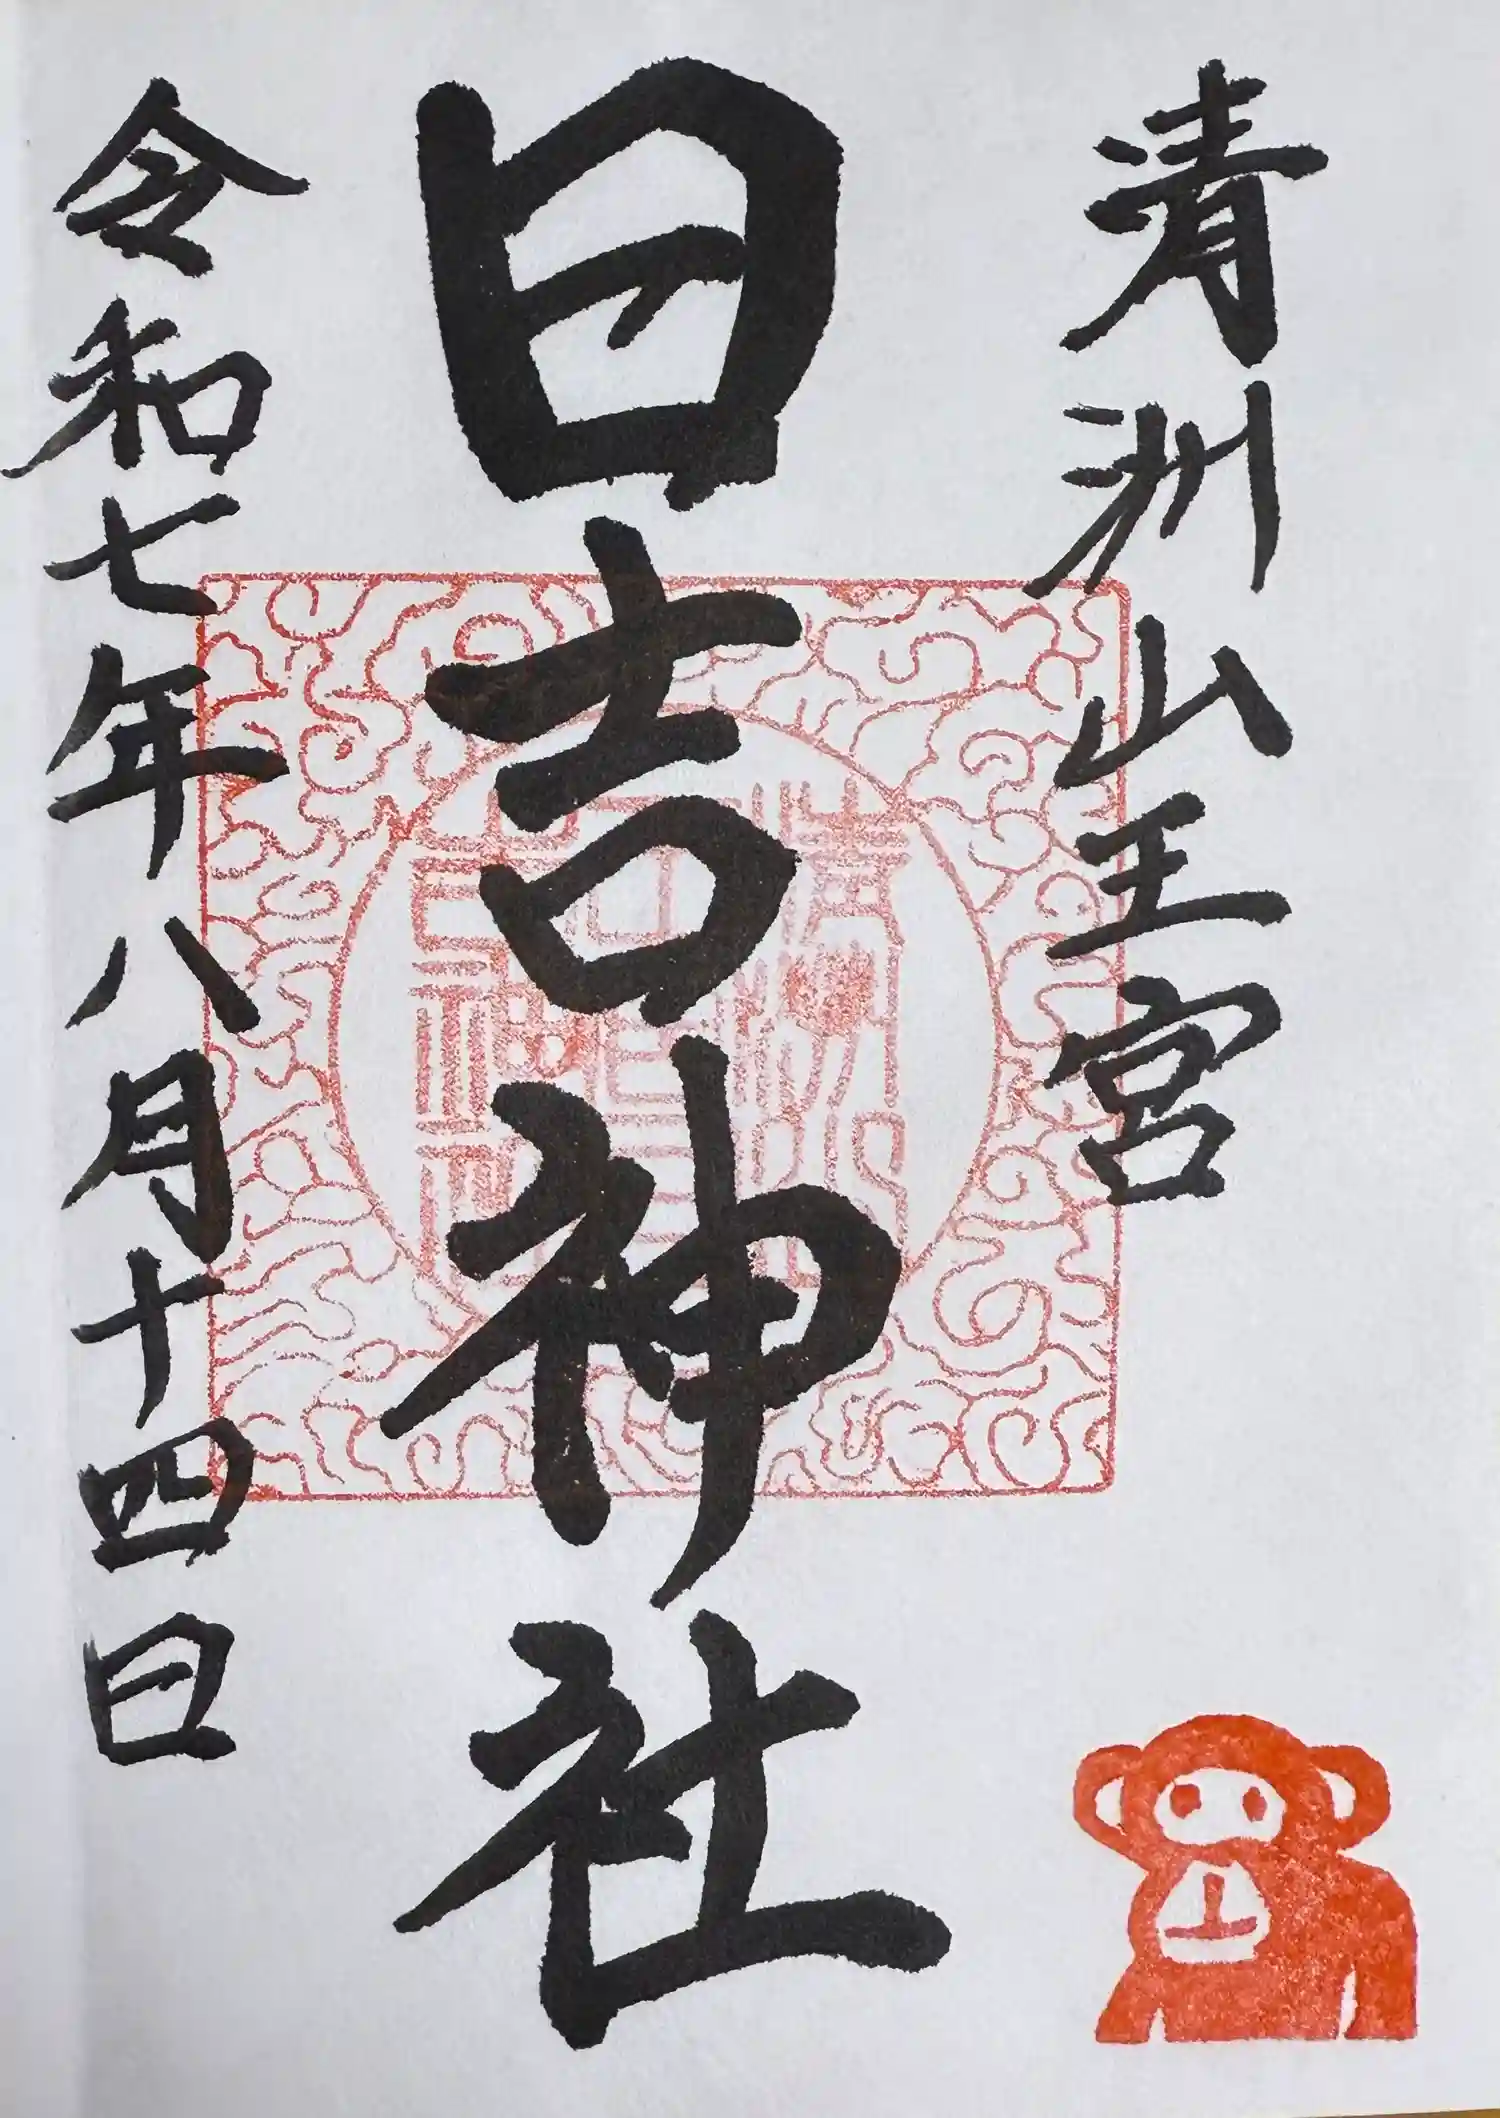 清洲山王宮
日吉神社
令和七年八月十四日